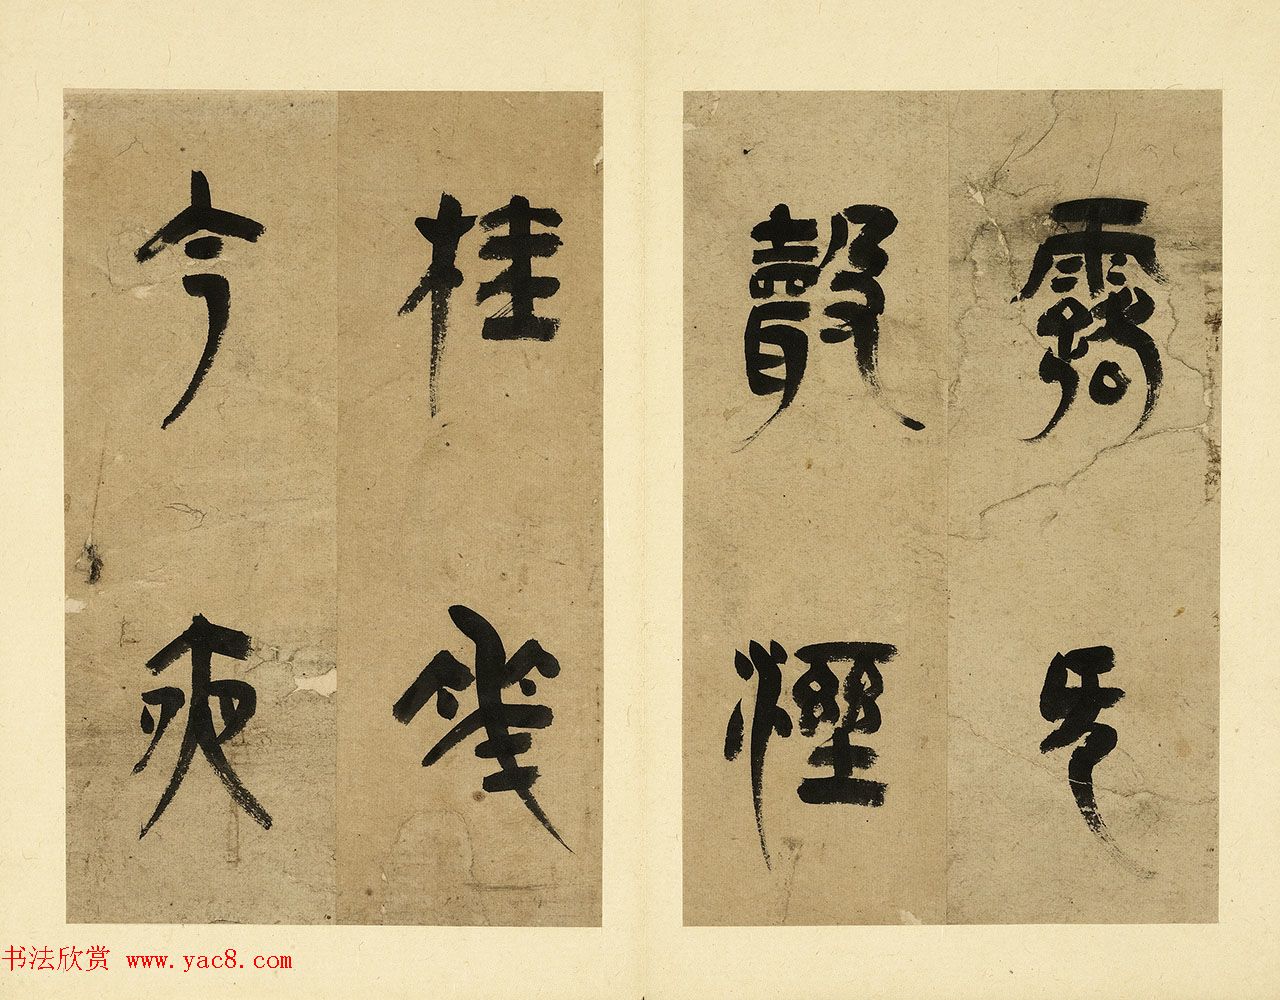 露无
聲溼
桂華
今夜
书法欣赏 www.yac8.com